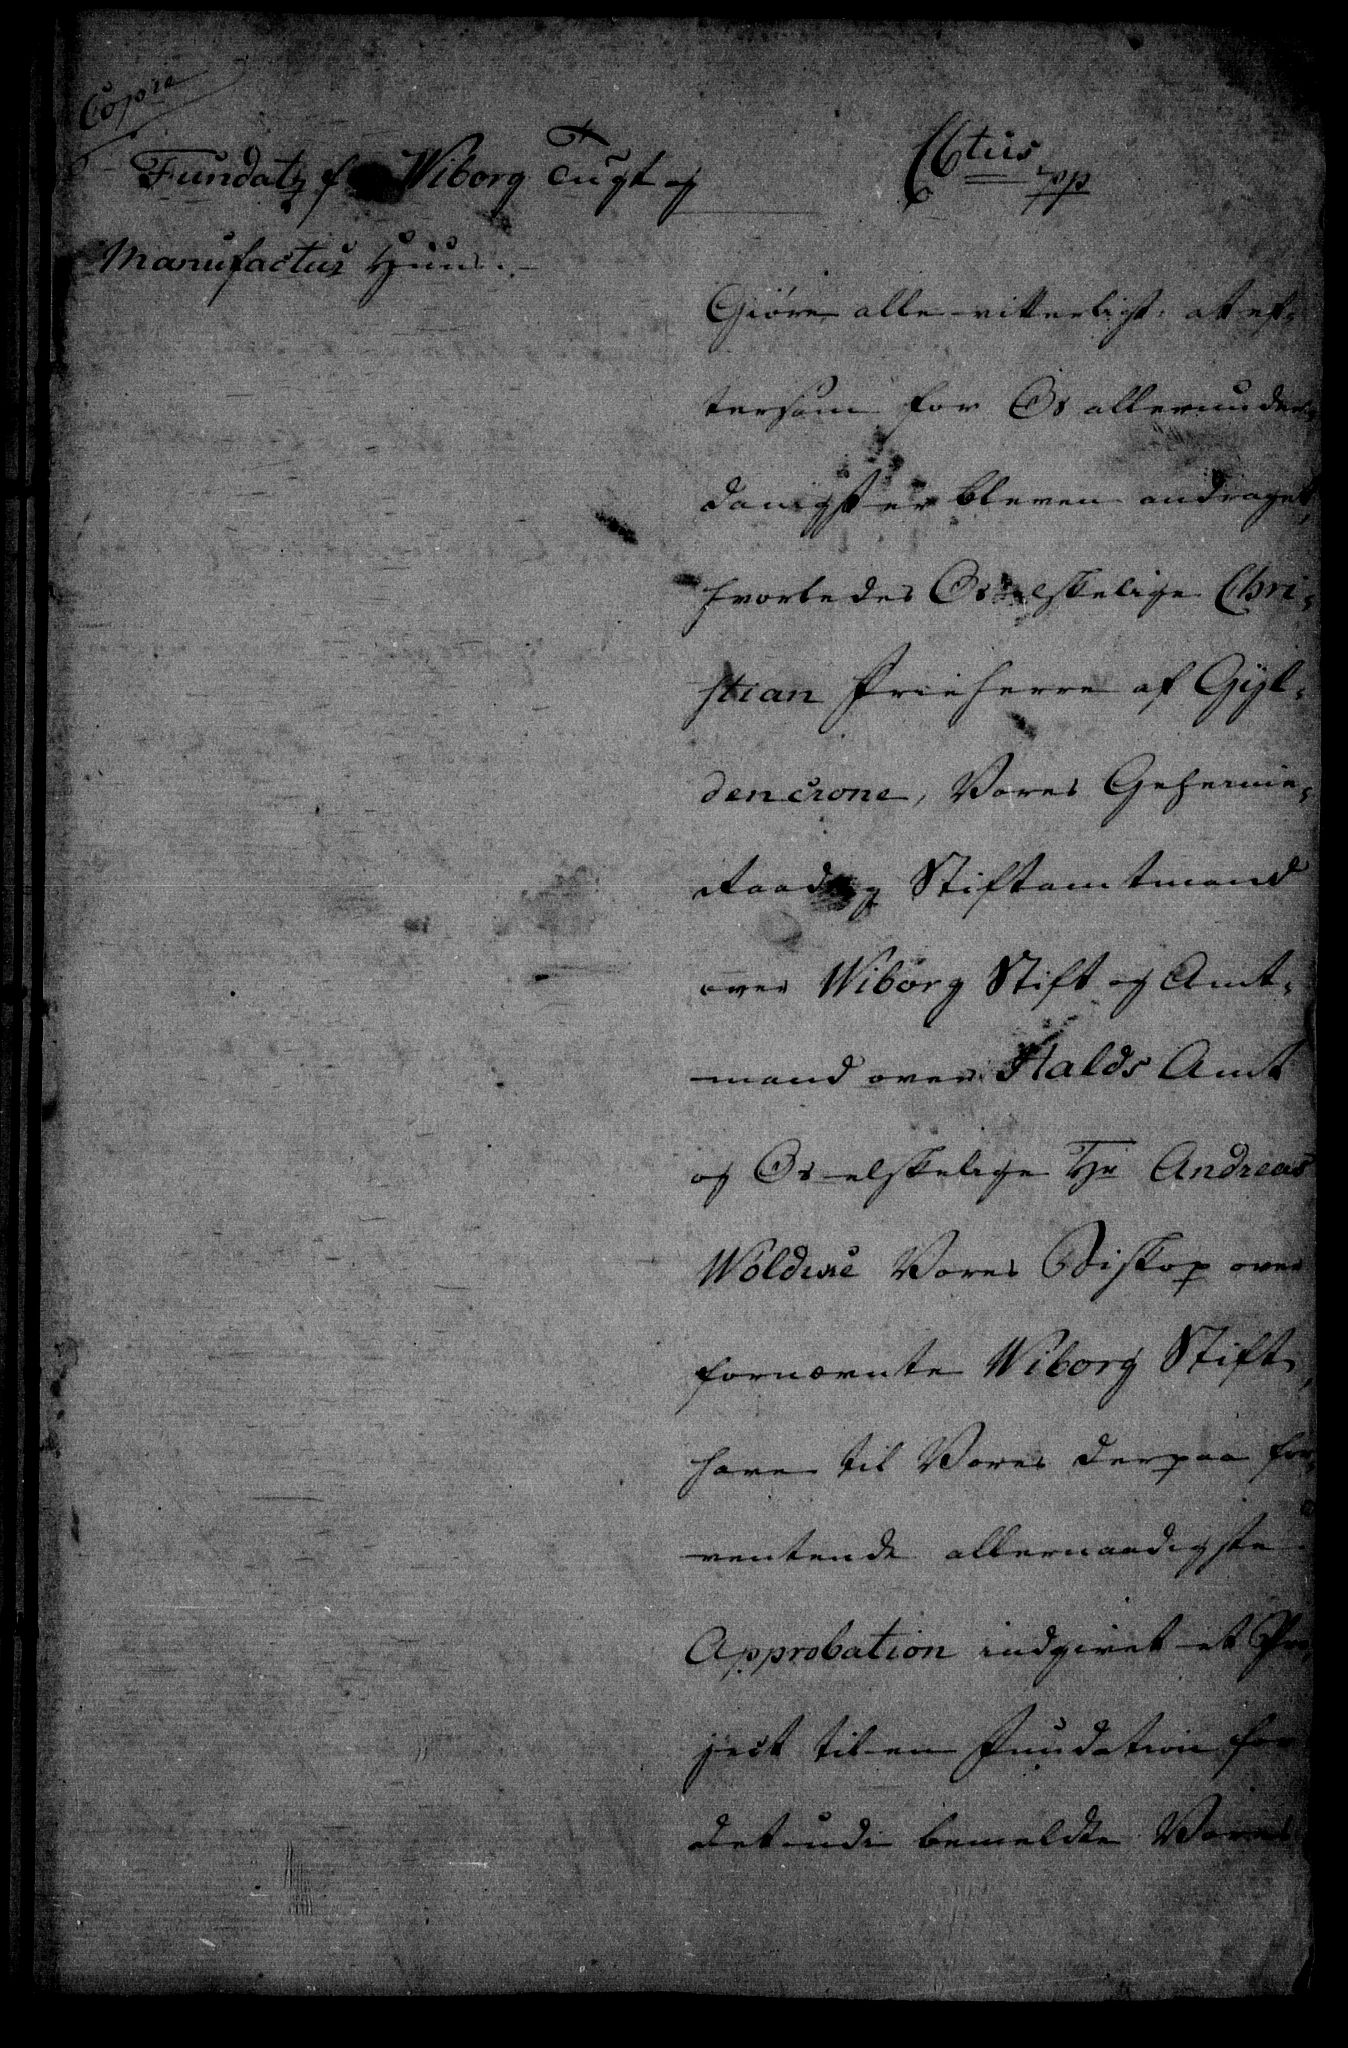 Copie
Fundatz for Wiborg Tugt og
Manufactur Huus.
Ctus
pp
Giøre alle vitterligt, at ef-
tersom for Os allerunder-
danigst er bleven andraget,
hvorledes Os elskelige Chri-
stian Frieherre af Gyl-
dencrone, Vores Geheime-
Raad og Stiftamtmand
over Wiborg Stift og Amt-
mand over Halds Amt
og Os elskelige Hr Andreas
Wöldike Vores Biskop over
fornævnte Wiborg Stift,
have til Vores derpaa for-
ventende allernaadigste
Approbation indgivet et Pro-
ject til en Fundation for
det udi bemeldte Vores